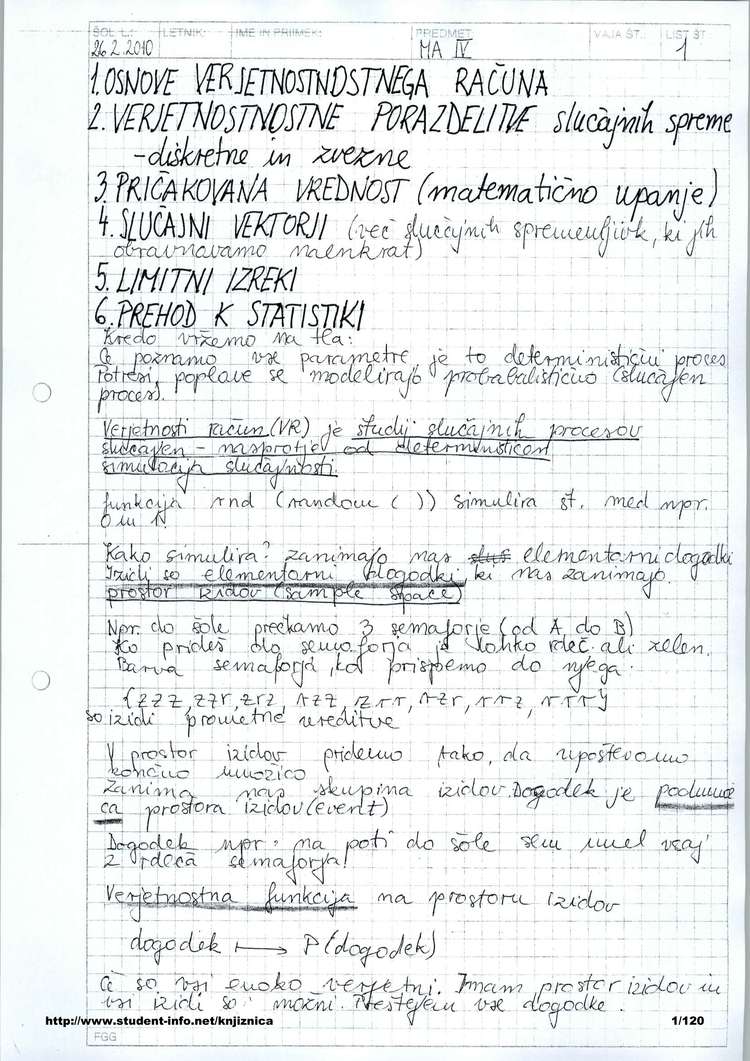 ŠOL. L.: LETNIK: IME IN PRIIMEK: PREDMET: VAJA ŠT.: LIST ŠT.:
26.2.2010 MA IV 1
1. OSNOVE VERJETNOSTNOSTNEGA RAČUNA
2. VERJETNOSTNOSTNE PORAZDELITVE slučajnih spreme
- diskretne in zvezne
3. PRIČAKOVANA VREDNOST (matematično upanje)
4. SLUČAJNI VEKTORJI (več slučajnih spremenljivk, ki jih
obravnavamo naenkrat)
5. LIMITNI IZREKI
6. PREHOD K STATISTIKI
Kredo vržemo na tla:
Če poznamo vse parametre, je to deterministični proces
Potresi, poplave se modelirajo probabalistično (slučajen
proces).
Verjetnosti račun (VR) je študij slučajnih procesov
slučajen - nasprotje od determinističen
simulacija slučajnosti.
funkcija rnd (random ( )) simulira št. med npr.
0 in 1.
Kako simulira? zanimajo nas elementarni dogodki
Izidi so elementarni dogodki, ki nas zanimajo.
prostor izidov (sample space)
Npr. do šole prečkamo 3 semaforje (od A do B)
Ko prideš do semaforja je lahko rdeč ali zelen.
Barva semaforja, ko prispemo do njega.
{zzz, zzr, zrz, rzz, zrr, rzr, rrz, rrr}
so izidi prometne ureditve
V prostor izidov pridemo tako, da upoštevamo
končno množico
Zanima nas skupina izidov. Dogodek je podmno
ca prostora izidov (event)
Dogodek npr: na poti do šole sem imel vsaj
2 rdeča semaforja!
Verjetnostna funkcija na prostoru izidov
dogodek ⟼ P(dogodek)
Če so vsi enako verjetni. Imam prostor izidov in
vsi izidi so možni. Preštejem vse dogodke.
http://www.student-info.net/knjiznica 1/120
FGG